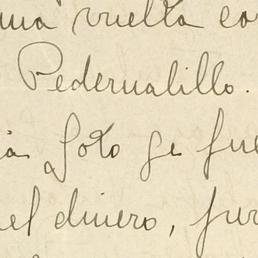 una vuelta co
Pedernalillo.
Soto ge fue
el dinero,